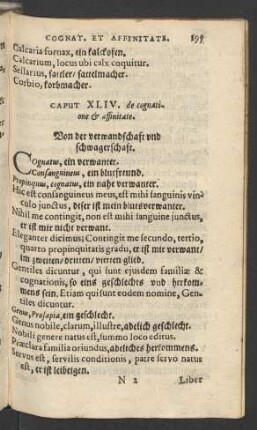 COGNAT. ET AFFINITATE. 195
Calcaria fornax, ein kalckofen.
Calcarium, locus ubi calx coquitur.
Sellarius, sattler/ sattelmacher.
Corbio, korbmacher.
CAPUT XLIV. de cognati-
one & affinitate.
Von der verwandschaft vnd
schwagerschaft.
COgnatus, ein verwanter.
Consanguineus, ein blutfreund.
Propinquus, cognatus, ein nahe verwanter.
Hic est consanguineus meus, est mihi sanguinis vin-
culo junctus, diser ist mein blutsverwanter.
Nihil me contingit, non est mihi sanguine junctus,
er ist mir nicht verwant.
Eleganter dicimus; Contingit me secundo, tertio,
quarto propinquitatis gradu, er ist mir verwant/
im zweiten/ dritten/ vierten glied.
Gentiles dicuntur, qui sunt ejusdem familiæ &
cognationis, so eins geschlechts vnd herkom-
mens sein. Etiam qui sunt eodem nomine, Gen-
tiles dicuntur.
Genus, Prosapia, ein geschlecht.
Genus nobile, clarum, illustre, adelich geschlecht.
Nobili genere natus est, summo loco editus.
Præclara familia oriundus, adeliches herkommens.
Servus est, servilis conditionis, patre servo natus
est, er ist leibeigen.
N 2 Liber